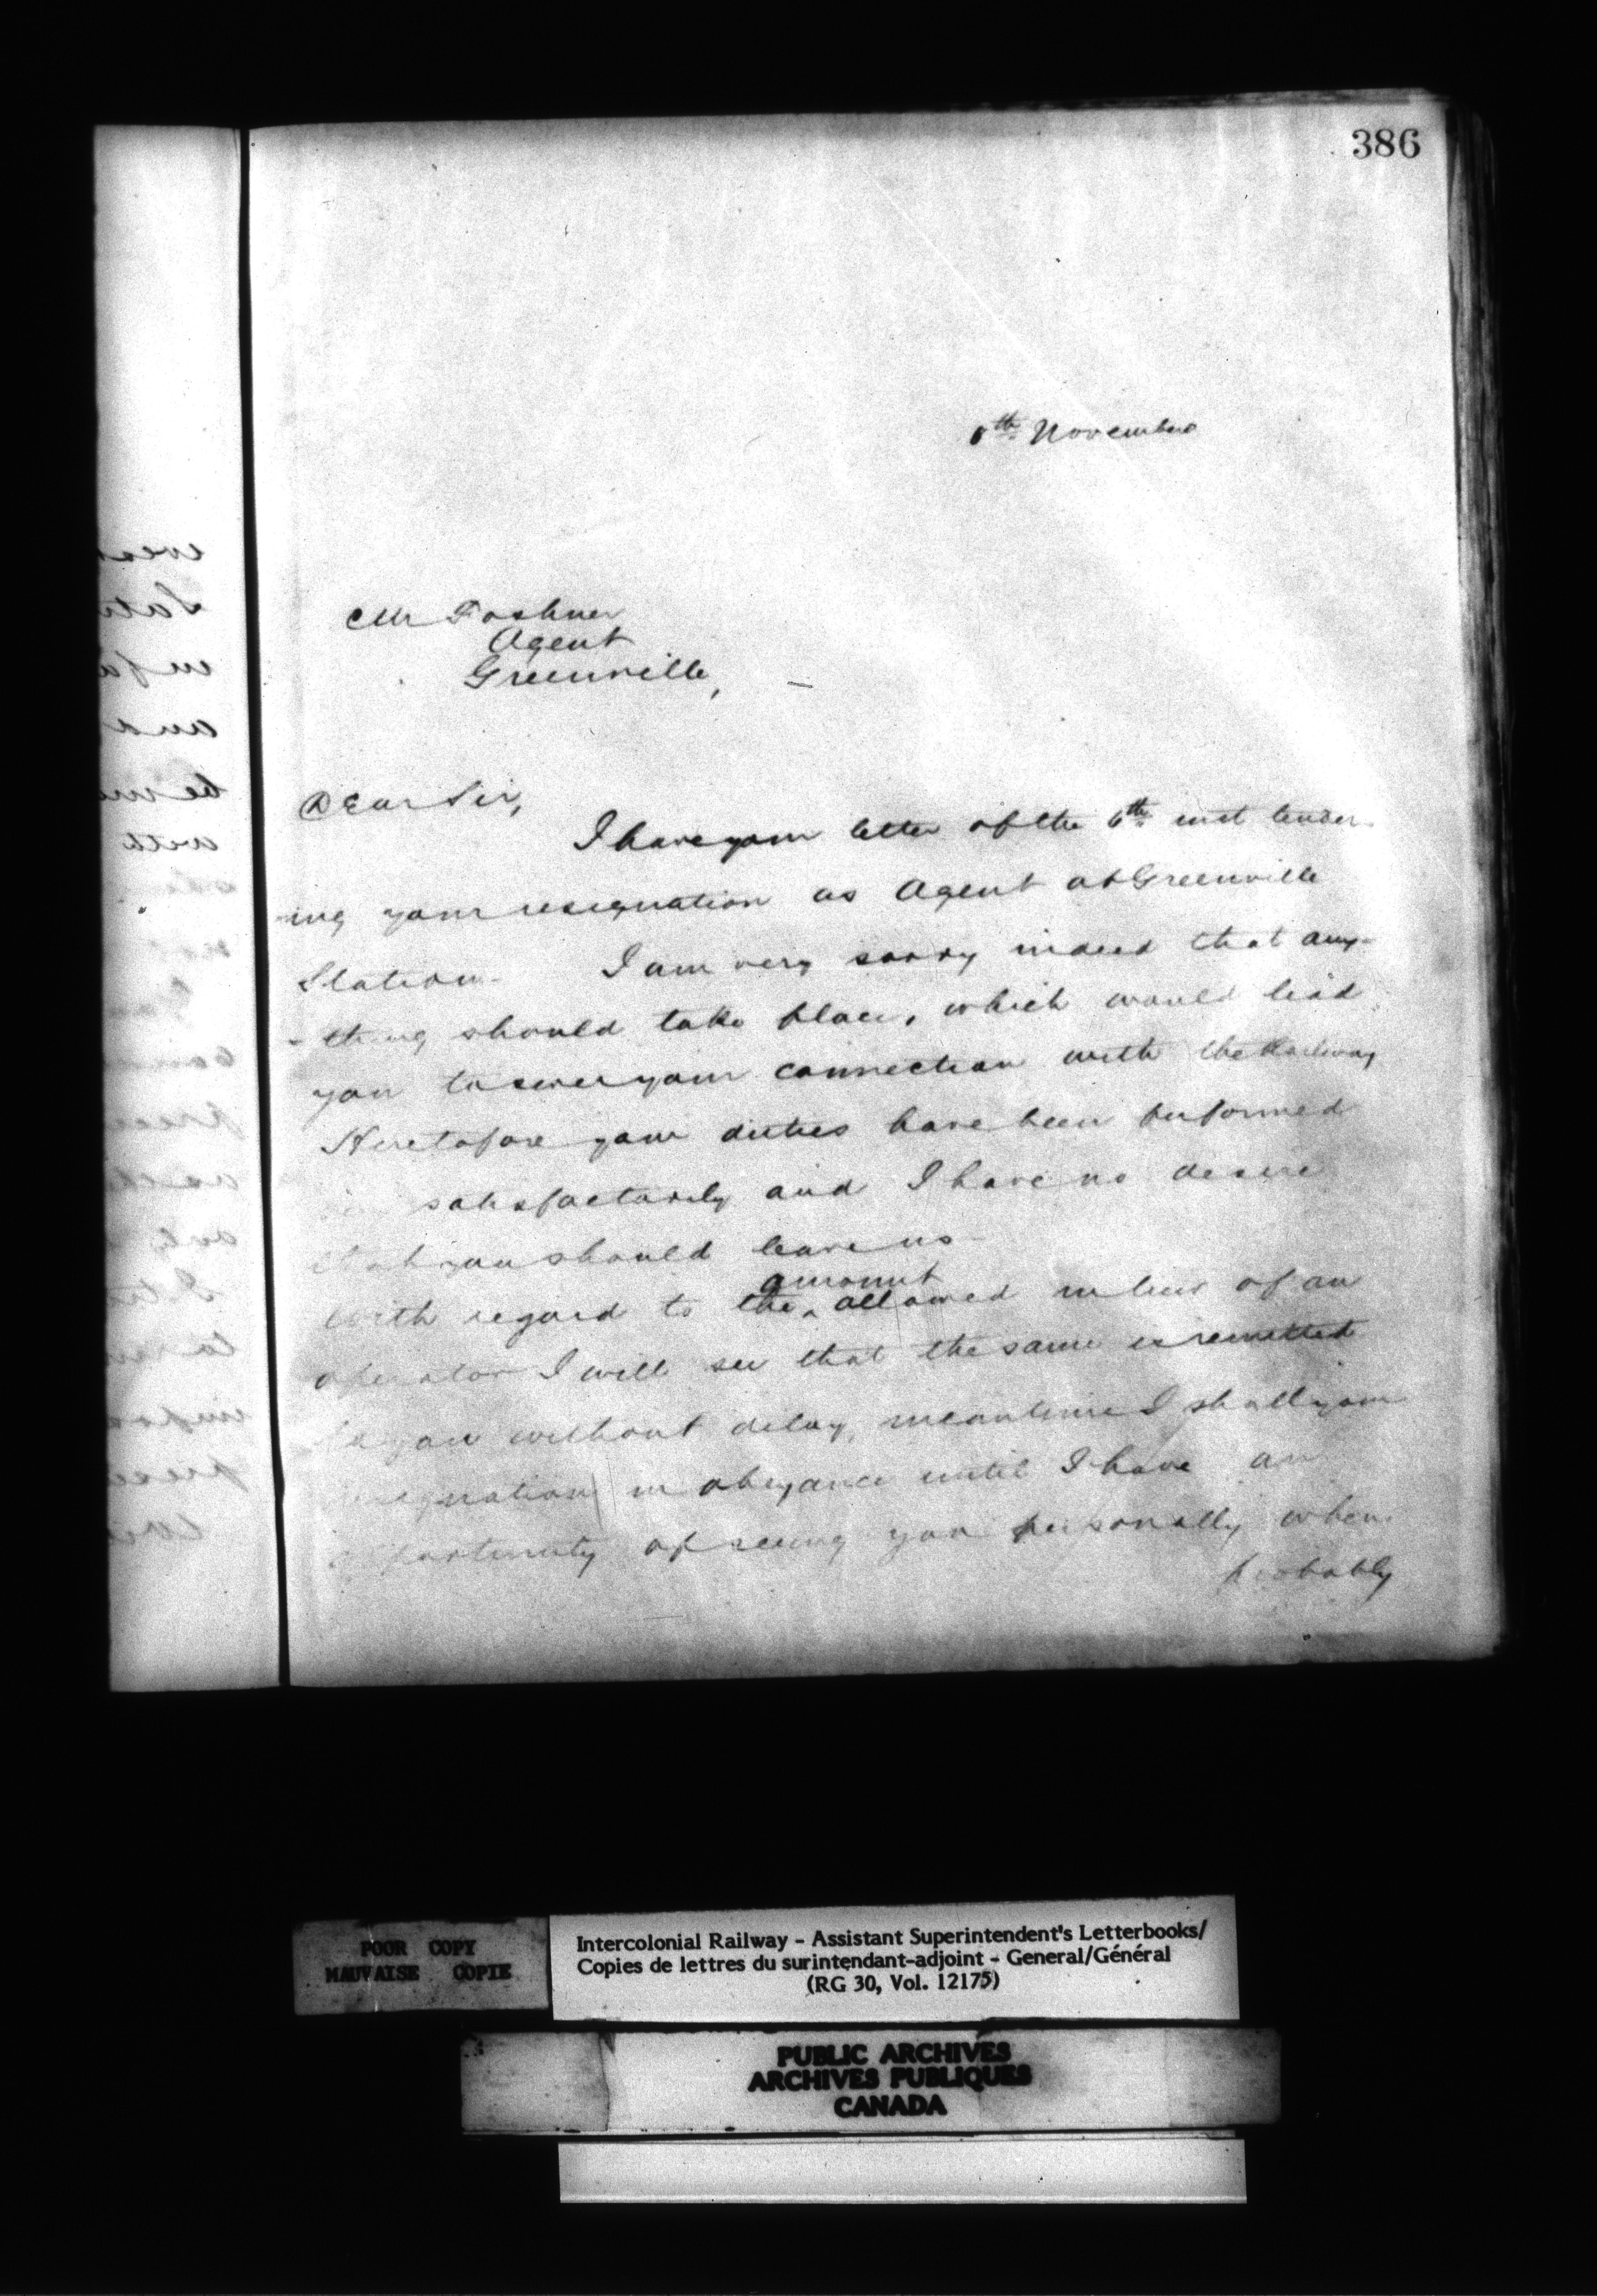 386
th November
Mr Foshner
Agent
Greenville,
Dear Sir,
I have your letter of the 6th inst tender-
-ing your resignation as Agent at Greenville
Station - I am very sorry indeed that any-
-thing should take place, which would lead
you to sever your connection with the Railway
Heretofore your duties have been performed
satisfactorily and I have no desire
that you should leave us -
amount
With regard to the ‸ allowed in lieu of an
operator I will see that the same is remitted
to you without delay, meantime I shall your
resignation in abeyance until I have an
opportunity of seeing you personally when
probably
POOR COPY
MAUVAISE COPIE
Intercolonial Railway - Assistant Superintendent's Letterbooks/
Copies de lettres du surintendant-adjoint - General/Général
(RG 30, Vol. 12175)
PUBLIC ARCHIVES
ARCHIVES PUBLIQUES
CANADA